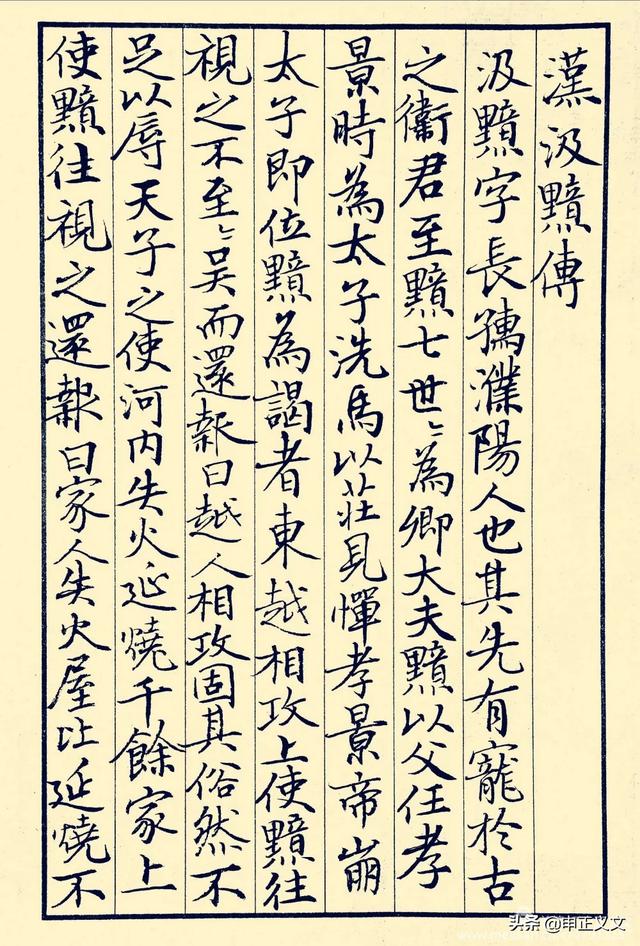 漢汲黯傳
汲黯字長孺濮陽人也其先有寵於古
之衛君至黯七世〻為卿大夫黯以父任孝
景時為太子洗馬以莊見憚孝景帝崩
太子即位黯為謁者東越相攻上使黯往
視之不至〻吳而還報曰越人相攻固其俗然不
足以辱天子之使河內失火延燒千餘家上
使黯往視之還報曰家人失火屋比延燒不
头条 @申正义文